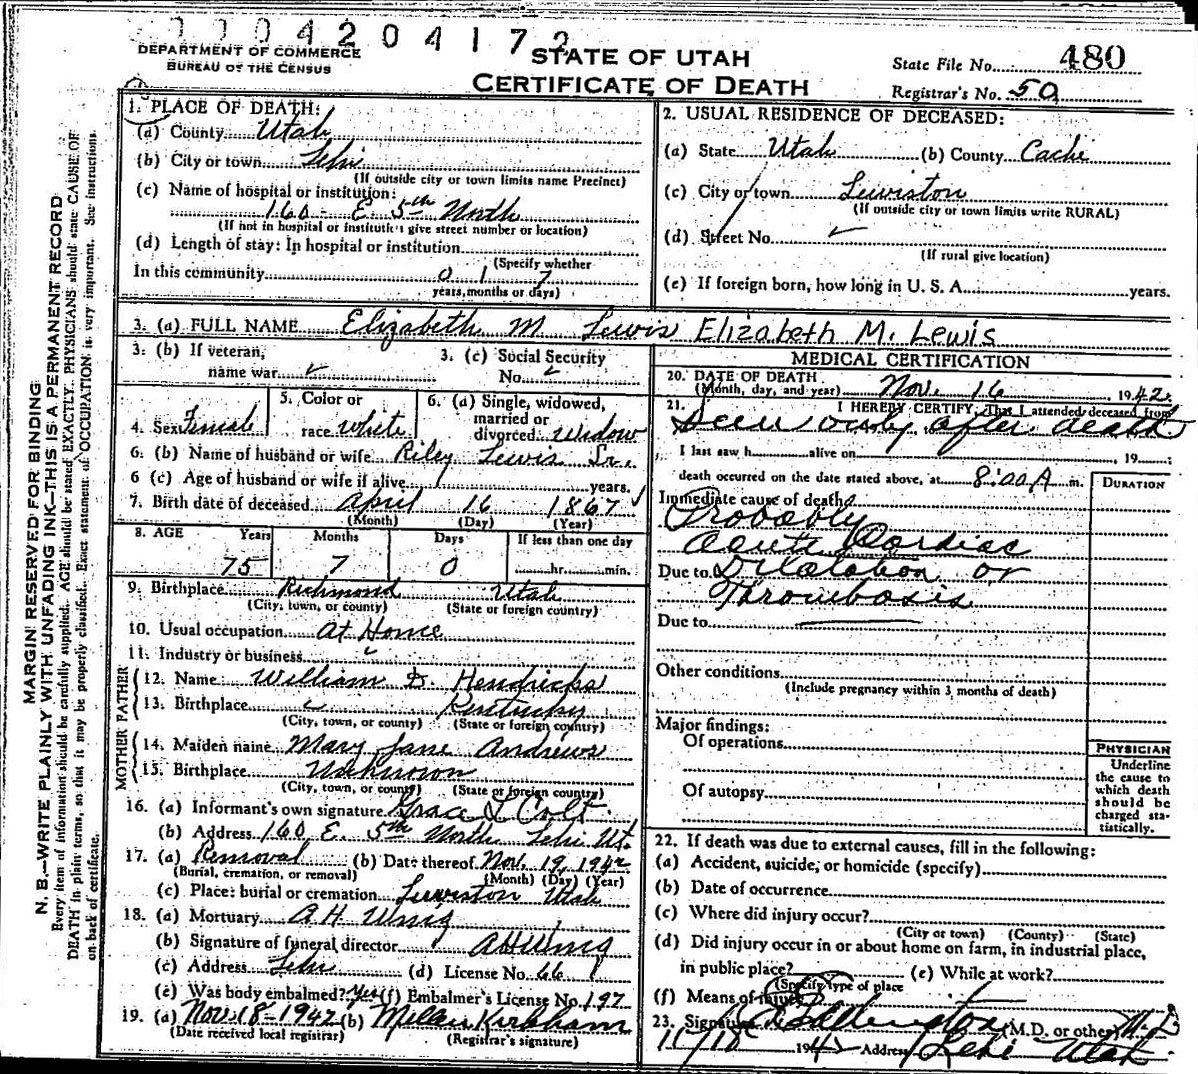 0004204172
DEPARTMENT OF COMMERCE
BUREAU OF THE CENSUS
STATE OF UTAH
CERTIFICATE OF DEATH
State File No. 480
Registrar's No. 50
MARGIN RESERVED FOR BINDING
N. B.—WRITE PLAINLY WITH UNFADING INK—THIS IS A PERMANENT RECORD
Every item of information should be carefully supplied. AGE should be stated EXACTLY. PHYSICIANS should state CAUSE OF
DEATH in plain terms, so that it may be properly classified. Exact statement of OCCUPATION is very important. See instructions
on back of certificate.
1. PLACE OF DEATH:
(a) County Utah
(b) City or town Lehi
(If outside city or town limits name Precinct)
(c) Name of hospital or institution:
160 - E. 5th North
(If not in hospital or institution give street number or location)
(d) Length of stay: In hospital or institution
(Specify whether
In this community 0 1 7
years, months or days)
2. USUAL RESIDENCE OF DECEASED:
(a) State Utah (b) County Cache
(c) City or town Lewiston
(If outside city or town limits write RURAL)
(d) Street No.
(If rural give location)
(e) If foreign born, how long in U. S. A. years.
3. (a) FULL NAME Elizabeth M Lewis Elizabeth M. Lewis
3. (b) If veteran,
name war
3. (c) Social Security
No.
4. Sex Female
5. Color or
race White
6. (a) Single, widowed,
married or
divorced Widow
6. (b) Name of husband or wife Riley Lewis Sr.
6 (c) Age of husband or wife if alive years.
7. Birth date of deceased April 16 1867
(Month) (Day) (Year)
8. AGE Years Months Days If less than one day
75 7 0 hr. min.
9. Birthplace Richmond Utah
(City, town, or county) (State or foreign country)
10. Usual occupation At Home
11. Industry or business
FATHER
12. Name William D. Hendricks
13. Birthplace Kentucky
(City, town, or county) (State or foreign country)
MOTHER
14. Maiden name Mary Jane Andrews
15. Birthplace Unknown
(City, town, or county) (State or foreign country)
16. (a) Informant's own signature Grace L Colt
(b) Address 160 E. 5th North Lehi Ut.
17. (a) Removal (b) Date thereof Nov. 19, 1942
(Burial, cremation, or removal) (Month) (Day) (Year)
(c) Place: burial or cremation Lewiston Utah
18. (a) Mortuary A H
(b) Signature of funeral director
(c) Address Lehi (d) License No. 66
(e) Was body embalmed? Yes (f) Embalmer's License No. 197
19. (a) Nov. 18-1942 (b) Kirkham
(Date received local registrar) (Registrar's signature)
MEDICAL CERTIFICATION
20. DATE OF DEATH
(Month, day, and year) Nov. 16 1942
21. I HEREBY CERTIFY, That I attended deceased from
Seen only after death
I last saw h alive on , 19 ;
death occurred on the date stated above, at 8:00 A m.
DURATION
Immediate cause of death
Probably
Acute Cardiac
Due to Dilatation or
Thrombosis
Due to
Other conditions
(Include pregnancy within 3 months of death)
Major findings:
Of operations
Of autopsy
PHYSICIAN
Underline
the cause to
which death
should be
charged sta-
tistically.
22. If death was due to external causes, fill in the following:
(a) Accident, suicide, or homicide (specify)
(b) Date of occurrence
(c) Where did injury occur?
(City or town) (County) (State)
(d) Did injury occur in or about home on farm, in industrial place,
in public place? (e) While at work?
(Specify type of place
(f) Means of injury
23. Signature (M.D. or other) M.D
11/18 1942 Address Lehi Utah